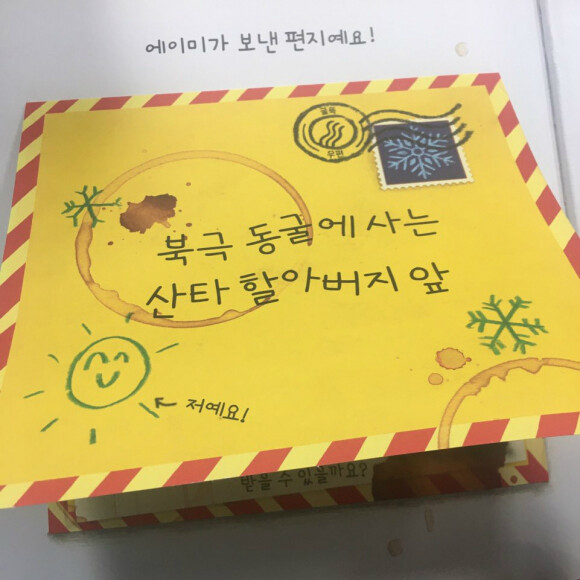 에이미가 보낸 편지예요!
북극
우편
북극 동굴에 사는
산타 할아버지 앞
저예요!
받을 수 있을까요?